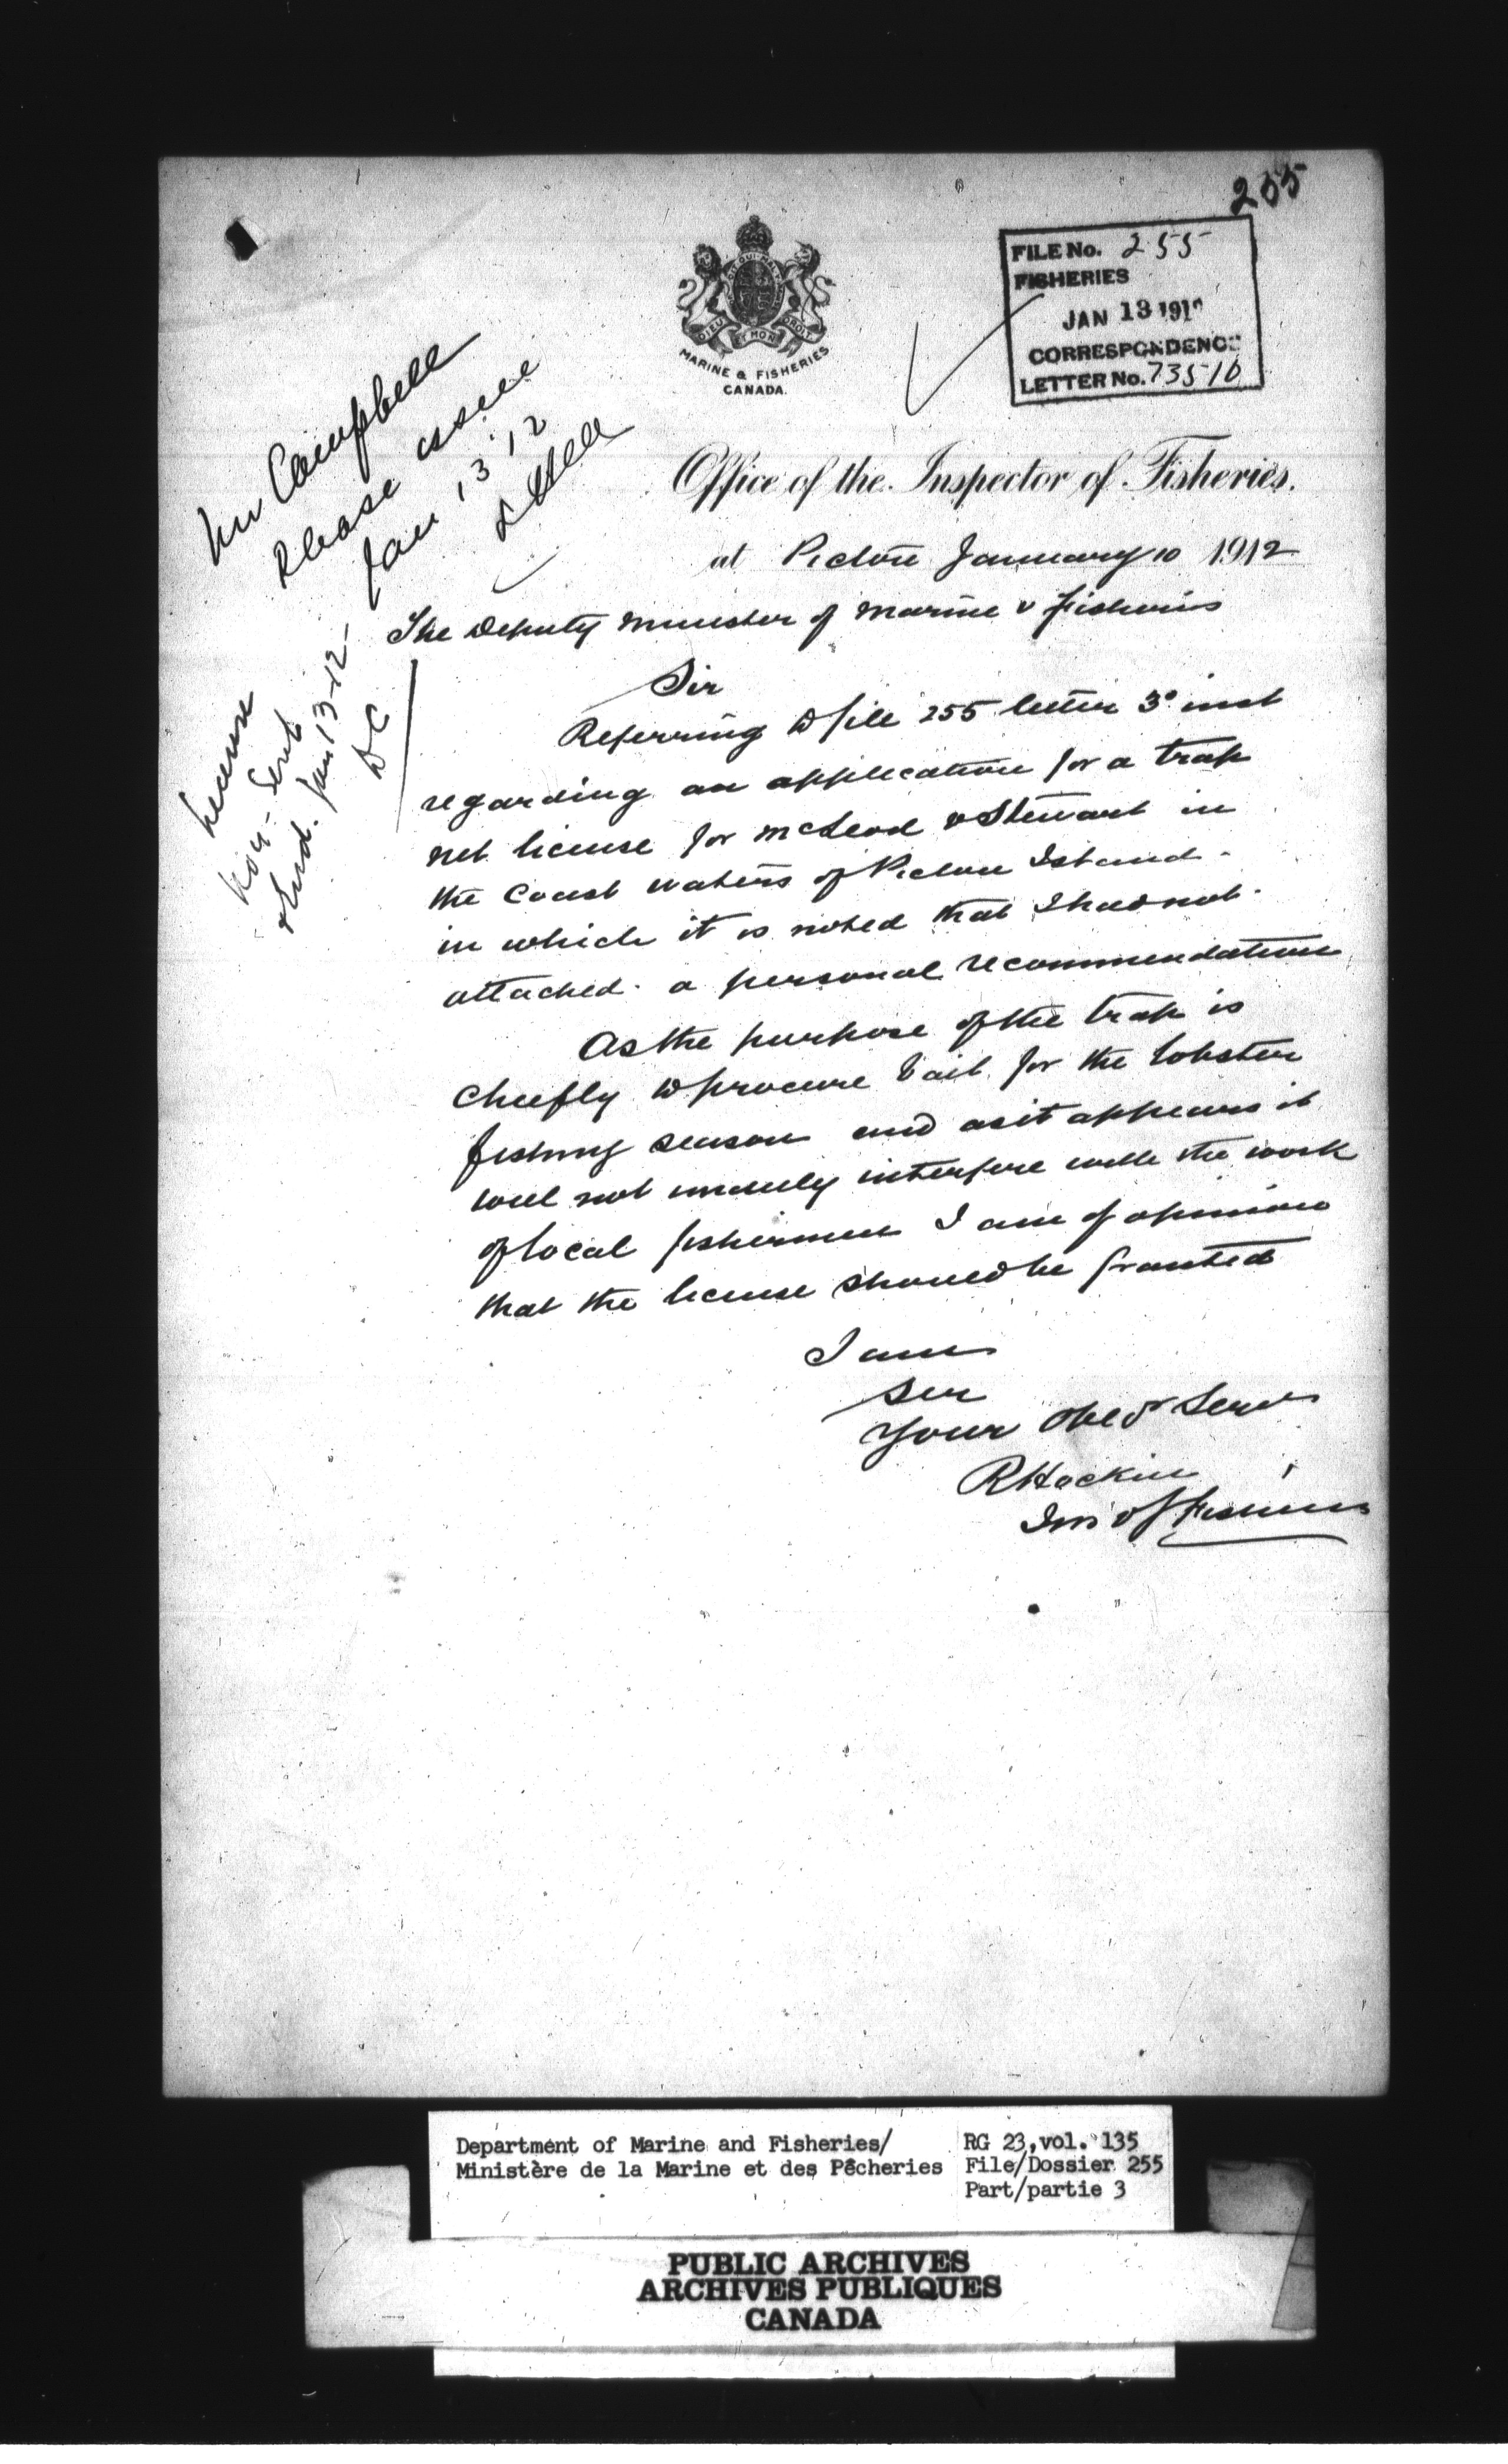 255
FILE No. 255
FISHERIES
JAN 13 191
CORRESPONDENCE
LETTER No. 73510
DIEU ET MON DROIT
MARINE & FISHERIES
CANADA.
Mr Campbell
Please issue
Jan 13 '12
Office of the Inspector of Fisheries.
at Pictou January 10 1912
License
Sent
Jan 13-12-
DC
The Deputy Minister of Marine & Fisheries
Sir
Referring to file 255 letter 3º inst
regarding an application for a trap
net license for McLeod & Stewart in
the Coast waters of Pictou Island.
in which it is noted that I had not
attached a personal recommendation
As the purpose of the trap is
cheefly to procure bait for the lobster
fishing season and as it appears it
will not unduly interfere with the work
of local fishermen I am of opinion
that the license should be granted
I am
Sir
Your Obed Servt
R Hockin
Ins of Fisheries
Department of Marine and Fisheries/
Ministère de la Marine et des Pêcheries
RG 23, vol. 135
File/Dossier 255
Part/partie 3
PUBLIC ARCHIVES
ARCHIVES PUBLIQUES
CANADA